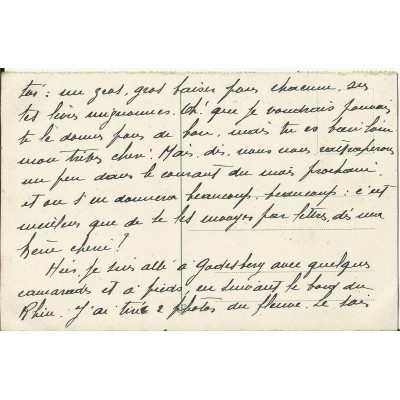 toi : un gros, gros baiser pour chacune, sur
tes lèvres mignonnes. Oh! que je voudrais pouvoir
te le donner pour de bon, mais tu es bien loin
mon trésor chéri. Mais, dis, nous nous rattraperons
un peu dans le courant du mois prochain
et on s'en donnera beaucoup, beaucoup : c'est
meilleur que de te les envoyer par lettre, dis ma
chérie?
Hier, je suis allé à Godesberg avec quelques
camarades et à pieds, en suivant le bord du
Rhin. J'ai tiré 2 photos du fleuve. Le soir